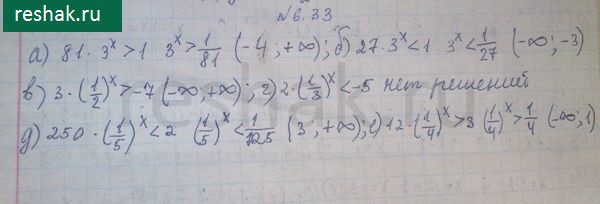 reshak.ru
№6.33
а) 81·3^x>1 3^x>1/81 (-4;+∞); б) 27·3^x<1 3^x<1/27 (-∞;-3)
в) 3·(1/2)^x>-7 (-∞;+∞); г) 2·(1/3)^x<-5 нет решений
д) 250·(1/5)^x<2 (1/5)^x<1/125 (3;+∞); е) 12·(1/4)^x>3 (1/4)^x>1/4 (-∞;1)